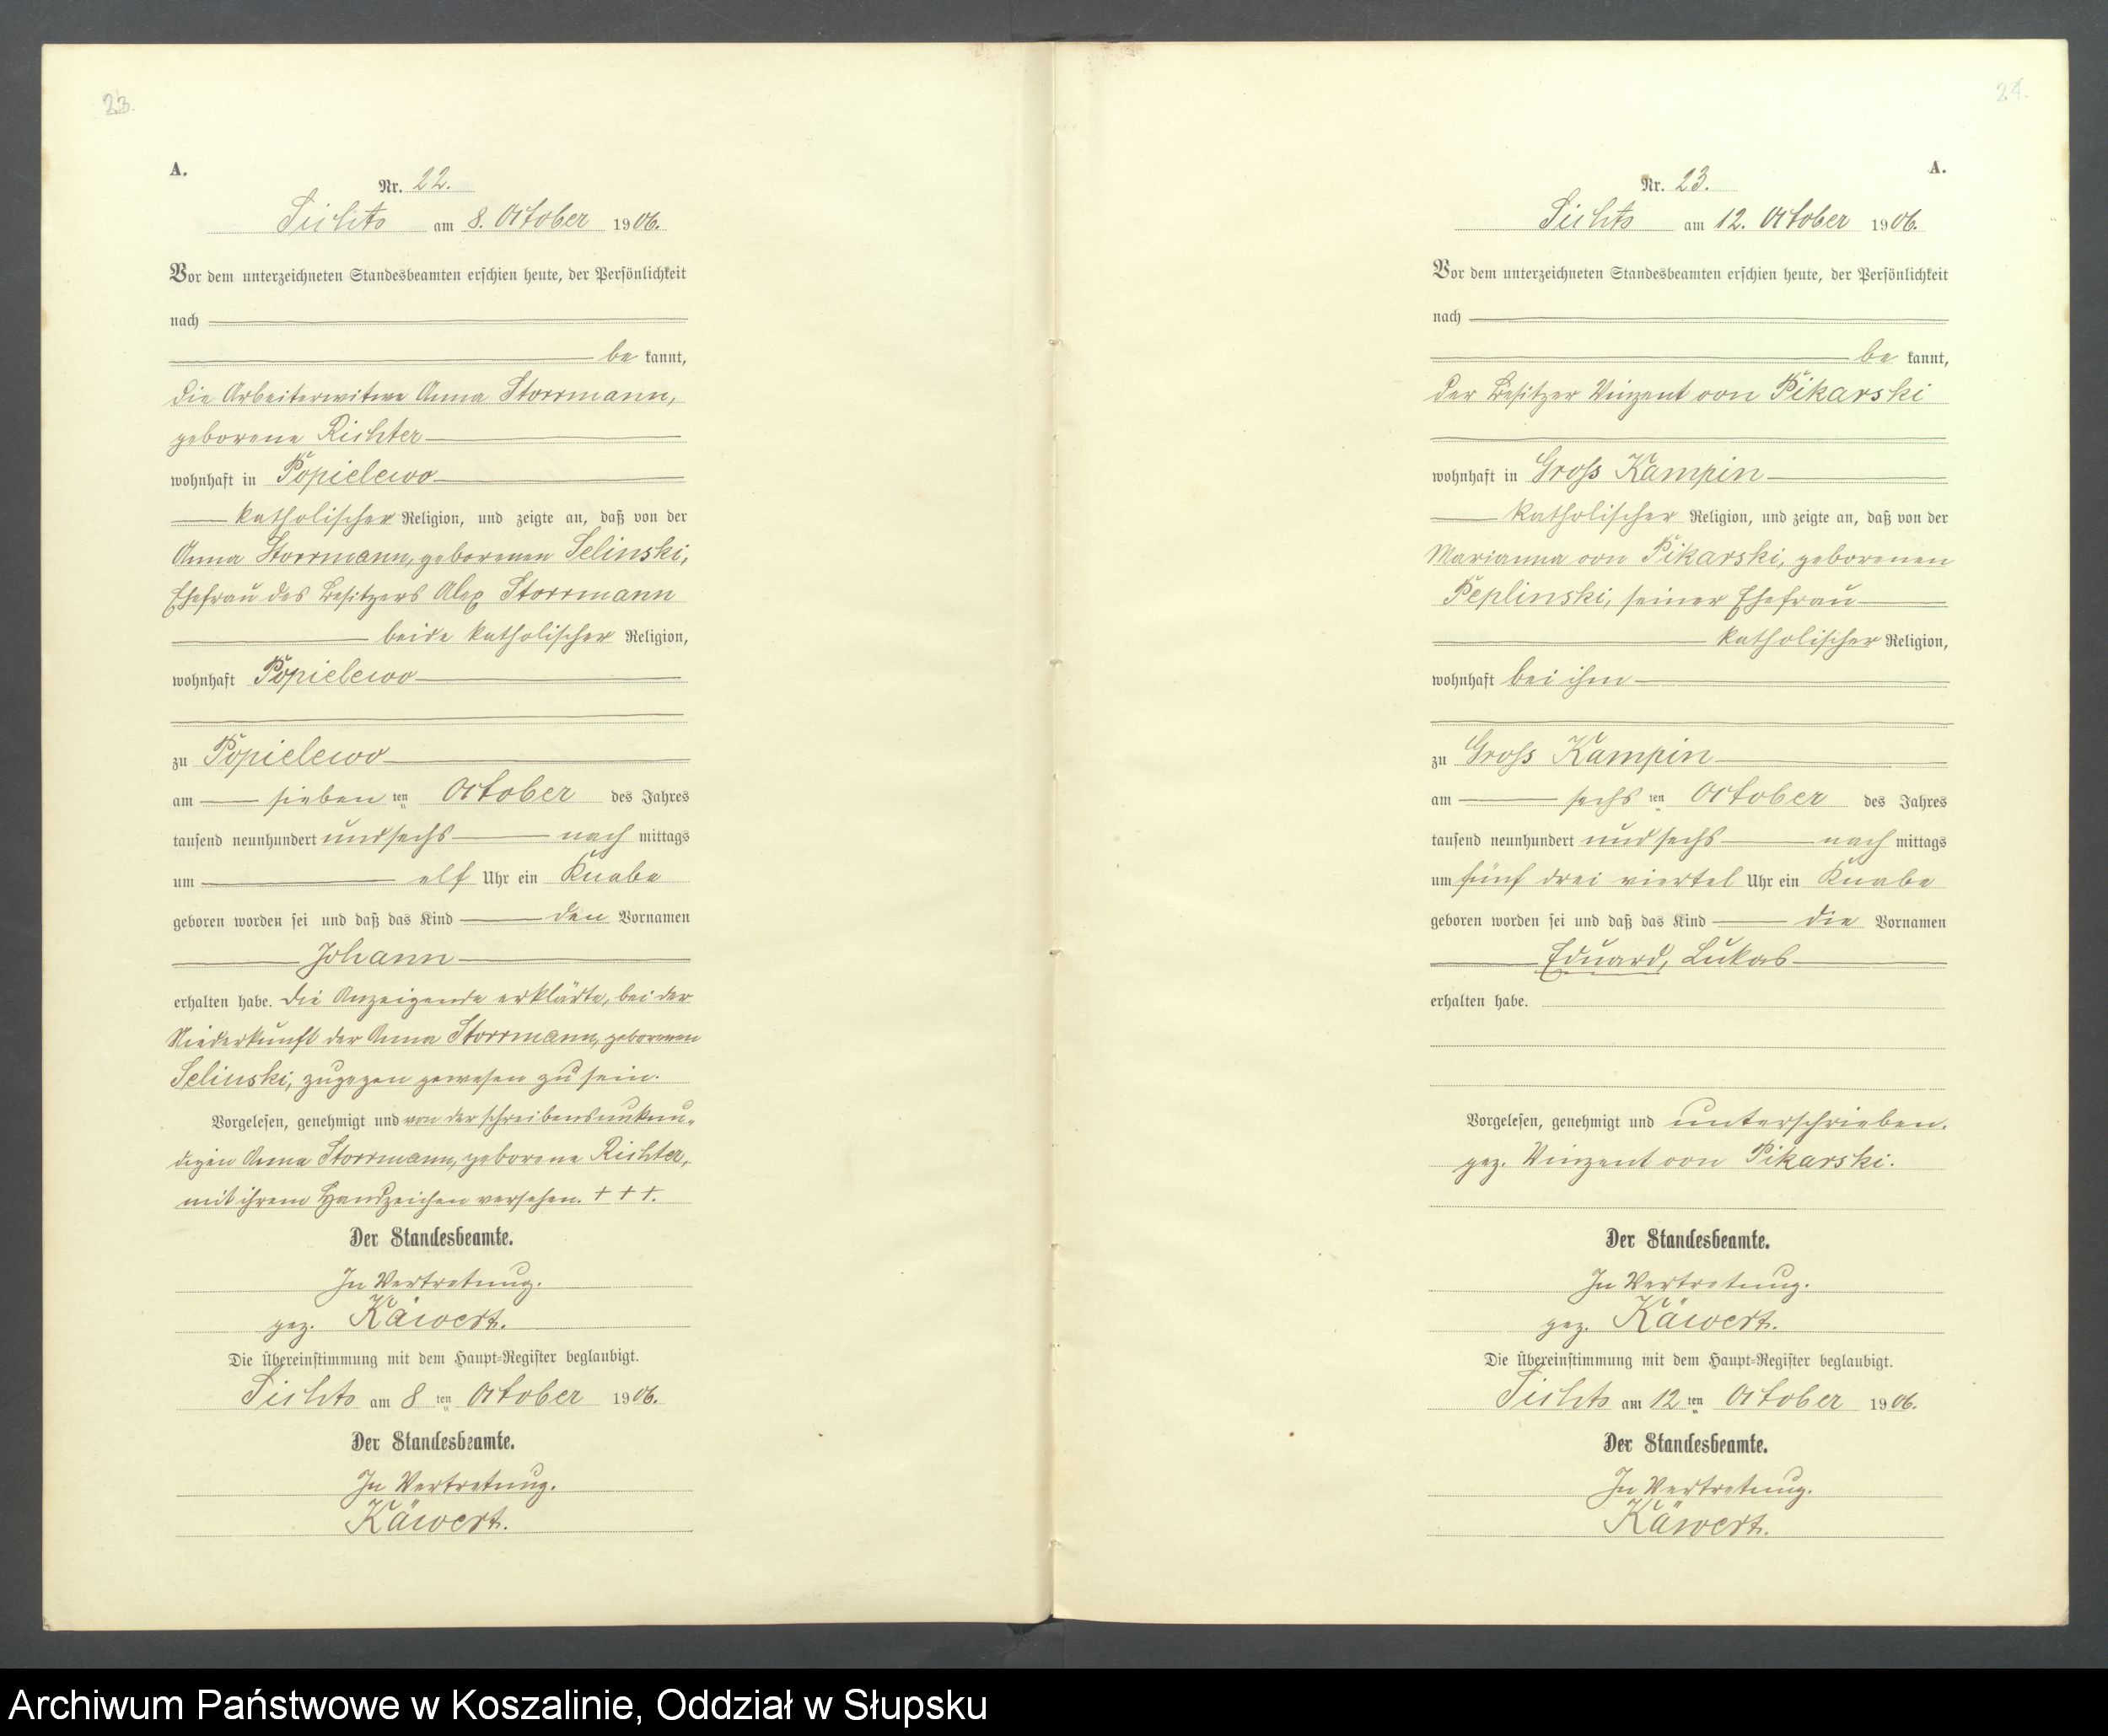 23.
A.
Nr. 22.
Sichts am 8. October 1906.
Vor dem unterzeichneten Standesbeamten erschien heute, der Persönlichkeit
nach
be kannt,
die Arbeiterwitwe Anna Storrmann,
geborene Richter
wohnhaft in Popielewo
katholischer Religion, und zeigte an, daß von der
Anna Storrmann, geborenen Selinski,
Ehefrau des Besitzers Alex Storrmann
beide katholischer Religion,
wohnhaft Popielewo
zu Popielewo
am sieben ten October des Jahres
tausend neunhundert und sechs nach mittags
um elf Uhr ein Knabe
geboren worden sei und daß das Kind den Vornamen
Johann
erhalten habe. Die Anzeigende erklärte, bei der
Niederkunft der Anna Storrmann, geborenen
Selinski, zugegen gewesen zu sein.
Vorgelesen, genehmigt und von der schreibensunkun-
digen Anna Storrmann, geborene Richter,
mit ihrem Handzeichen versehen. + + +.
Der Standesbeamte.
In Vertretung.
gez. Käwert.
Die Übereinstimmung mit dem Haupt-Register beglaubigt.
Sichts am 8 ten October 1906.
Der Standesbeamte.
In Vertretung.
Käwert.
24.
A.
Nr. 23.
Sichts am 12. October 1906.
Vor dem unterzeichneten Standesbeamten erschien heute, der Persönlichkeit
nach
be kannt,
der Besitzer Vinzent von Pikarski
wohnhaft in Gross Kampin
katholischer Religion, und zeigte an, daß von der
Marianna von Pikarski, geborenen
Peplinski, seiner Ehefrau
katholischer Religion,
wohnhaft bei ihm
zu Gross Kampin
am sechs ten October des Jahres
tausend neunhundert und sechs nach mittags
um fünf drei viertel Uhr ein Knabe
geboren worden sei und daß das Kind die Vornamen
Eduard, Lukas
erhalten habe.
Vorgelesen, genehmigt und unterschrieben.
gez. Vinzent von Pikarski.
Der Standesbeamte.
In Vertretung.
gez. Käwert.
Die Übereinstimmung mit dem Haupt-Register beglaubigt.
Sichts am 12 ten October 1906.
Der Standesbeamte.
In Vertretung.
Käwert.
Archiwum Państwowe w Koszalinie, Oddział w Słupsku